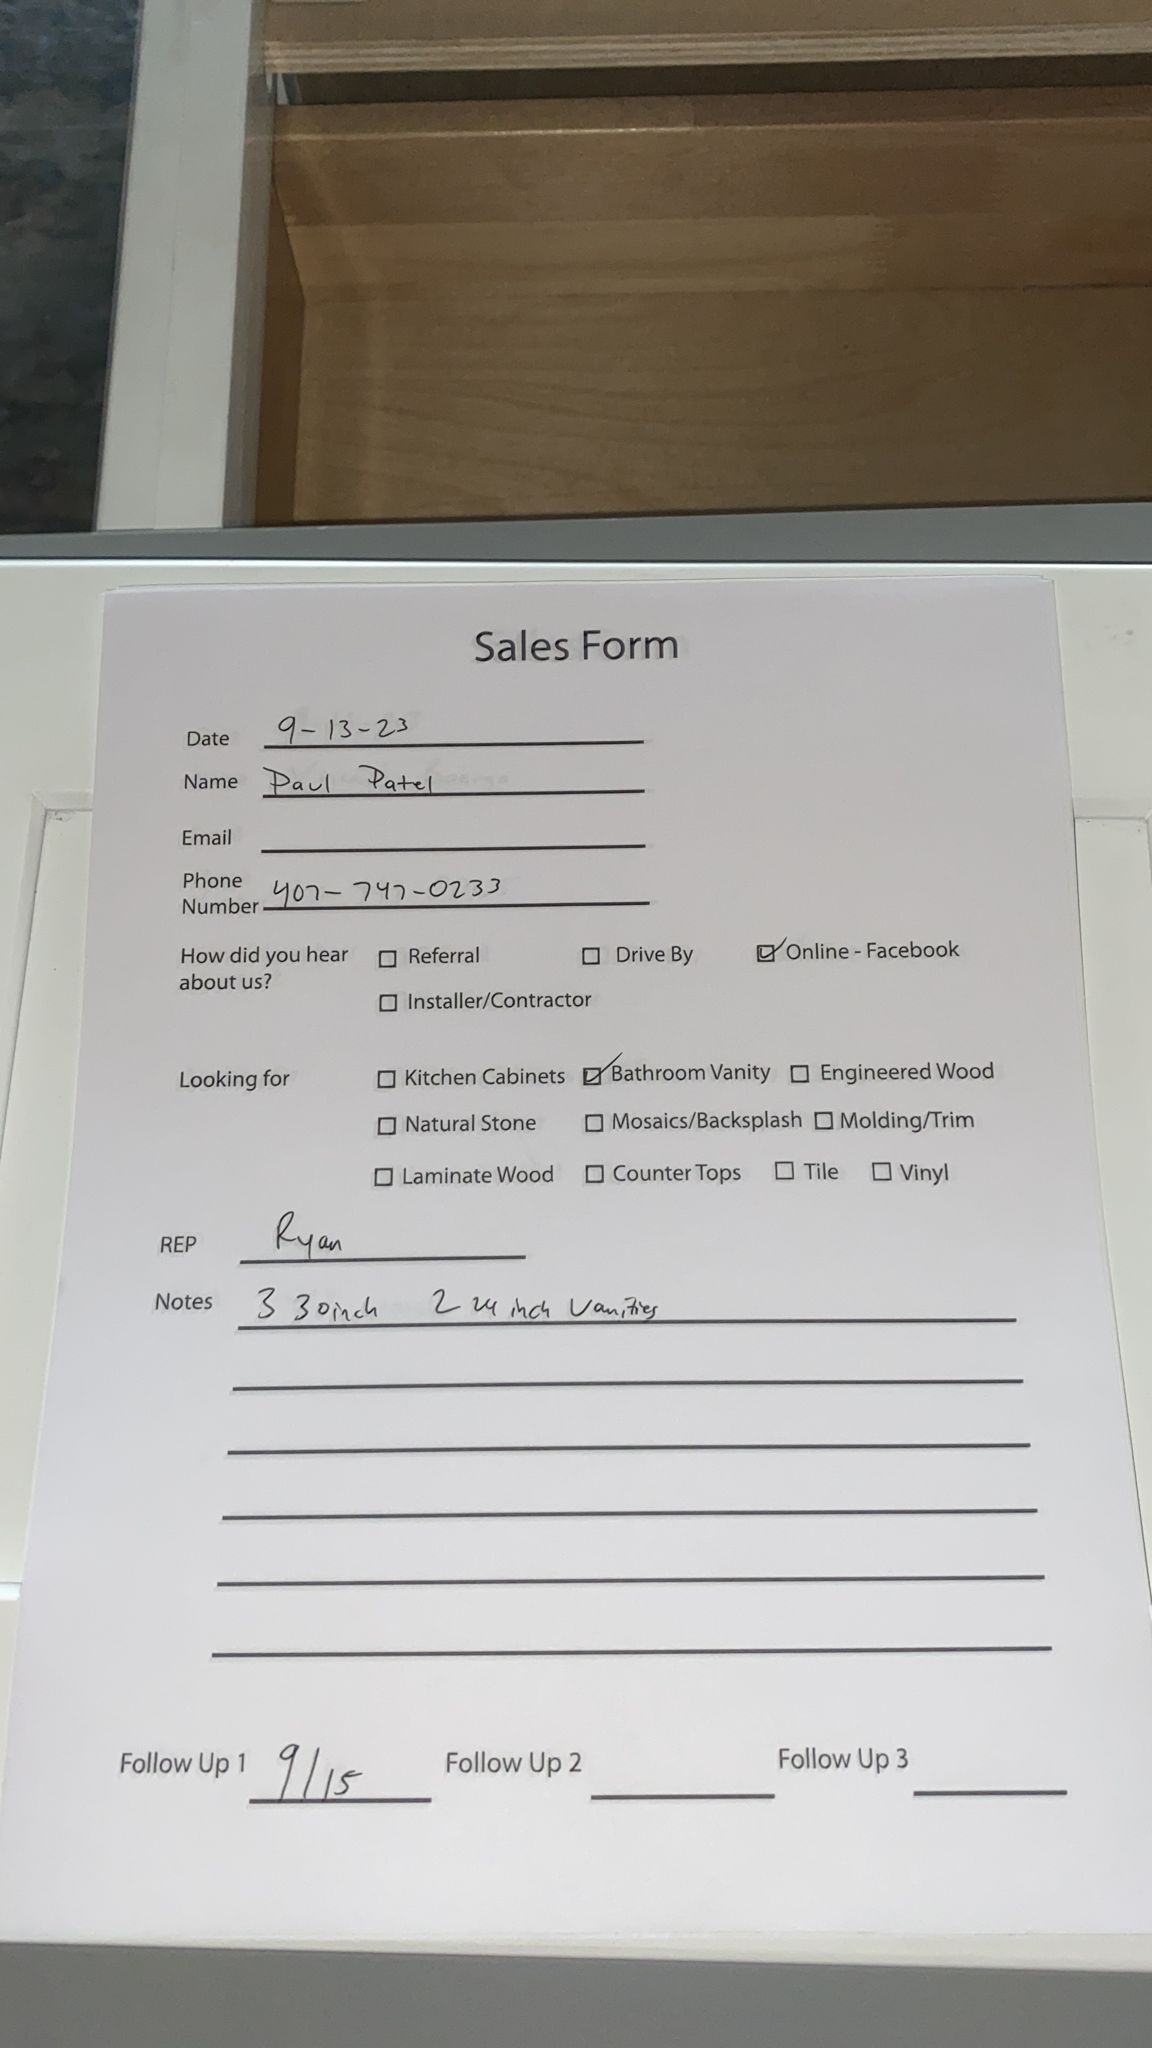 Sales Form
Date 9-13-23
Name Paul Patel
Email
Phone Number 407-747-0233
How did you hear about us? ☐ Referral ☐ Drive By ☑ Online - Facebook
☐ Installer/Contractor
Looking for ☐ Kitchen Cabinets ☑ Bathroom Vanity ☐ Engineered Wood
☐ Natural Stone ☐ Mosaics/Backsplash ☐ Molding/Trim
☐ Laminate Wood ☐ Counter Tops ☐ Tile ☐ Vinyl
REP Ryan
Notes 3 30inch 2 24 inch Vanities
Follow Up 1 9/15 Follow Up 2 Follow Up 3